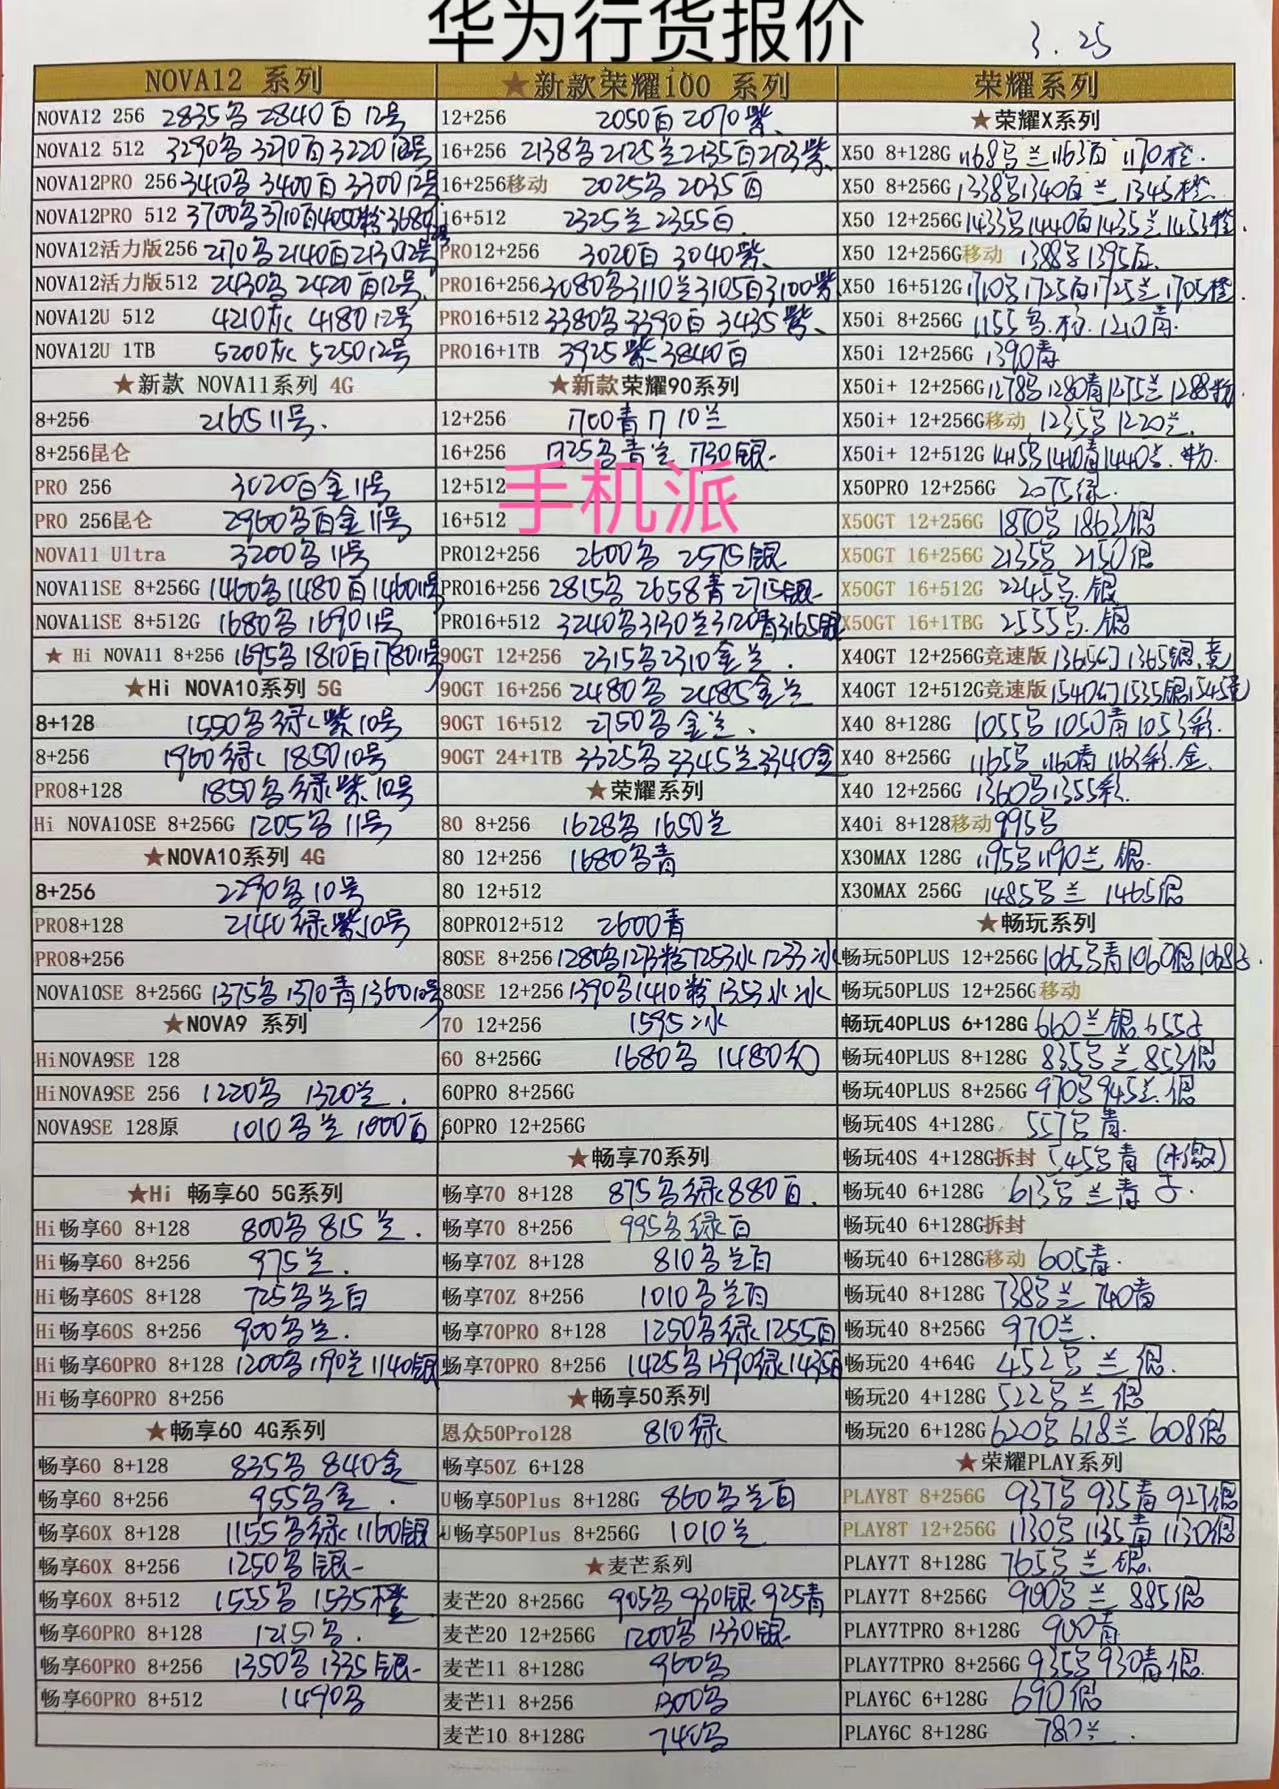 华为行货报价
3.25
NOVA12 系列
NOVA12 256 2835名 2840百 12号
NOVA12 512 3290名 3270百 3220 12号
NOVA12PRO 256 3410名 3400百 3300 12号
NOVA12PRO 512 3700名 3710百 4050粉 3680
NOVA12活力版256 2170名 2140百 2130 12号
NOVA12活力版512 2430名 2420百 12号
NOVA12U 512 4210灰 4180 12号
NOVA12U 1TB 5200灰 5250 12号
★新款 NOVA11系列 4G
8+256 2165 11号
8+256昆仑
PRO 256 3020百金 11号
PRO 256昆仑 2960名百金 11号
NOVA11 Ultra 3200名 11号
NOVA11SE 8+256G 1460名 1480百 1460 11号
NOVA11SE 8+512G 1680名 1690 11号
★ Hi NOVA11 8+256 1695名 1810百 1780 11号
★Hi NOVA10系列 5G
8+128 1550名绿紫 10号
8+256 1960绿 1850 10号
PRO8+128 1850名绿紫 10号
Hi NOVA10SE 8+256G 1205名 11号
★NOVA10系列 4G
8+256 2290名 10号
PRO8+128 2140绿紫 10号
PRO8+256
NOVA10SE 8+256G 1375名 1370青 1360 10号
★NOVA9 系列
HiNOVA9SE 128
HiNOVA9SE 256 1220名 1320兰
NOVA9SE 128原 1010名兰 1000百
★Hi 畅享60 5G系列
Hi畅享60 8+128 800名 815兰
Hi畅享60 8+256 975兰
Hi畅享60S 8+128 725名兰百
Hi畅享60S 8+256 900名兰
Hi畅享60PRO 8+128 1200名 1190兰 1140银
Hi畅享60PRO 8+256
★畅享60 4G系列
畅享60 8+128 835名 840金
畅享60 8+256 955名金
畅享60X 8+128 1155名绿 1160银
畅享60X 8+256 1250名银
畅享60X 8+512 1555名 1535橙
畅享60PRO 8+128 1215名
畅享60PRO 8+256 1350名 1335银
畅享60PRO 8+512 1490名
★新款荣耀100 系列
12+256 2050百 2070紫
16+256 2138名 2125兰 2135百 2123紫
16+256移动 2025名 2035百
16+512 2325兰 2355百
PRO12+256 3020百 3040紫
PRO16+256 3080名 3110兰 3105百 3100紫
PRO16+512 3380名 3390百 3435紫
PRO16+1TB 3925紫 3840百
★新款荣耀90系列
12+256 1700青 1710兰
16+256 1725名青兰 1730银
12+512
手机派
16+512
PRO12+256 2600名 2575银
PRO16+256 2815名 2658青 2715银
PRO16+512 3240名 3130兰 3120青 3165银
90GT 12+256 2315名 2310金兰
90GT 16+256 2480名 2485金兰
90GT 16+512 2750名金兰
90GT 24+1TB 3325名 3345兰 3340金
★荣耀系列
80 8+256 1628名 1650兰
80 12+256 1680名青
80 12+512
80PRO12+512 2600青
80SE 8+256 1280名 1273粉 1253冰 1233冰
80SE 12+256 1390名 1410粉 1353冰冰
70 12+256 1595冰
60 8+256G 1680名 1480幻
60PRO 8+256G
60PRO 12+256G
★畅享70系列
畅享70 8+128 875名绿 880百
畅享70 8+256 995名绿百
畅享70Z 8+128 810名兰百
畅享70Z 8+256 1010名兰百
畅享70PRO 8+128 1250名绿 1255百
畅享70PRO 8+256 1425名 1390绿 1435百
★畅享50系列
恩众50Pro128 810绿
畅享50Z 6+128
U畅享50Plus 8+128G 860名兰百
U畅享50Plus 8+256G 1010兰
★麦芒系列
麦芒20 8+256G 905名 930银 925青
麦芒20 12+256G 1200名 1330银
麦芒11 8+128G 960名
麦芒11 8+256 1300名
麦芒10 8+128G 740名
荣耀系列
★荣耀X系列
X50 8+128G 1168号兰 1163百 1170橙
X50 8+256G 1338号 1340百兰 1345橙
X50 12+256G 1433号 1440百 1435兰 1453橙
X50 12+256G移动 1388号 1395百
X50 16+512G 1710号 1725百 1725兰 1705橙
X50i 8+256G 1155号粉 1210青
X50i 12+256G 1390青
X50i+ 12+256G 1278号 1280青 1275兰 1288粉
X50i+ 12+256G移动 1235号 1220兰
X50i+ 12+512G 1415号 1410青 1440兰粉
X50PRO 12+256G 2075绿
X50GT 12+256G 1870号 1863银
X50GT 16+256G 2135号 2150银
X50GT 16+512G 2245号银
X50GT 16+1TBG 2555号银
X40GT 12+256G竞速版 1365幻 1365银竞
X40GT 12+512G竞速版 1540幻 1535银 1545竞
X40 8+128G 1055号 1050青 1053彩
X40 8+256G 1165号 1160青 1163彩金
X40 12+256G 1360号 1355彩
X40i 8+128移动 995号
X30MAX 128G 1195号 1190兰银
X30MAX 256G 1485号兰 1465银
★畅玩系列
畅玩50PLUS 12+256G 1065号青 1060银 1068
畅玩50PLUS 12+256G移动
畅玩40PLUS 6+128G 660兰银 655
畅玩40PLUS 8+128G 835号兰 853银
畅玩40PLUS 8+256G 970号 945兰银
畅玩40S 4+128G 557号青
畅玩40S 4+128G拆封 545号青
畅玩40 6+128G 613号兰青
畅玩40 6+128G拆封
畅玩40 6+128G移动 605青
畅玩40 8+128G 738号兰 740青
畅玩40 8+256G 970兰
畅玩20 4+64G 452号兰银
畅玩20 4+128G 522号兰银
畅玩20 6+128G 620号 618兰 608银
★荣耀PLAY系列
PLAY8T 8+256G 937号 935青 927银
PLAY8T 12+256G 1130号 1135青 1130银
PLAY7T 8+128G 765号兰银
PLAY7T 8+256G 900号兰 885银
PLAY7TPRO 8+128G 900青
PLAY7TPRO 8+256G 935号 930青银
PLAY6C 6+128G 690银
PLAY6C 8+128G 780兰